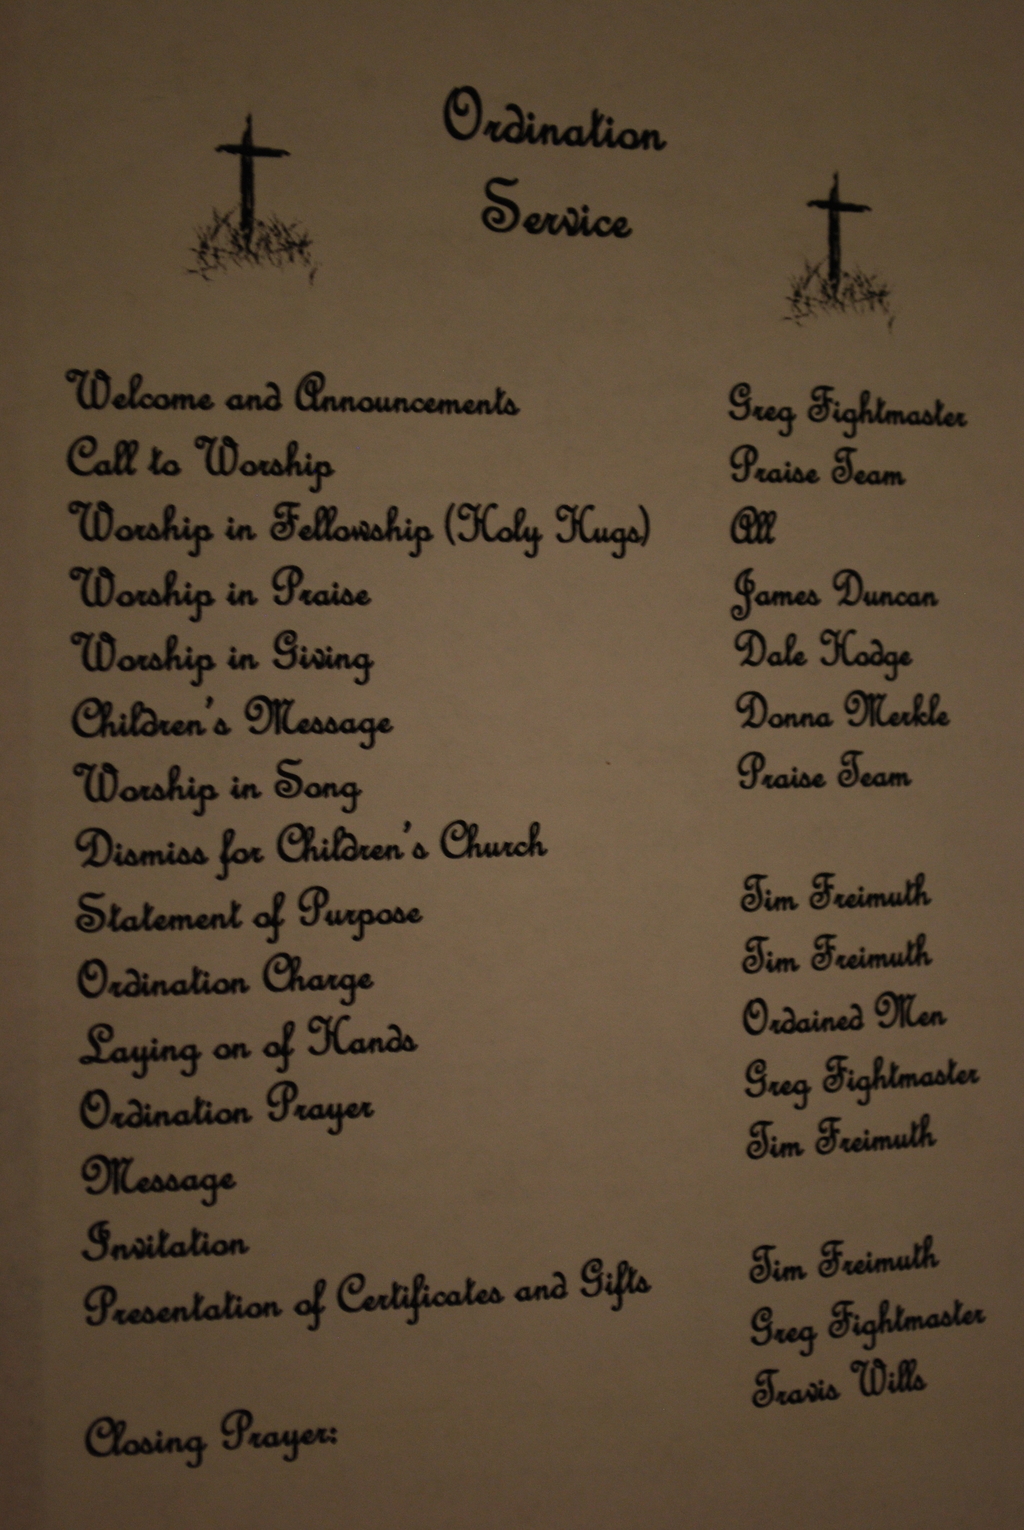 Ordination
Service
Welcome and Announcements Greg Fightmaster
Call to Worship Praise Team
Worship in Fellowship (Holy Hugs) All
Worship in Praise James Duncan
Worship in Giving Dale Hodge
Children's Message Donna Merkle
Worship in Song Praise Team
Dismiss for Children's Church
Statement of Purpose Tim Freimuth
Ordination Charge Tim Freimuth
Laying on of Hands Ordained Men
Ordination Prayer Greg Fightmaster
Message Tim Freimuth
Invitation
Presentation of Certificates and Gifts Tim Freimuth
Greg Fightmaster
Travis Wills
Closing Prayer: